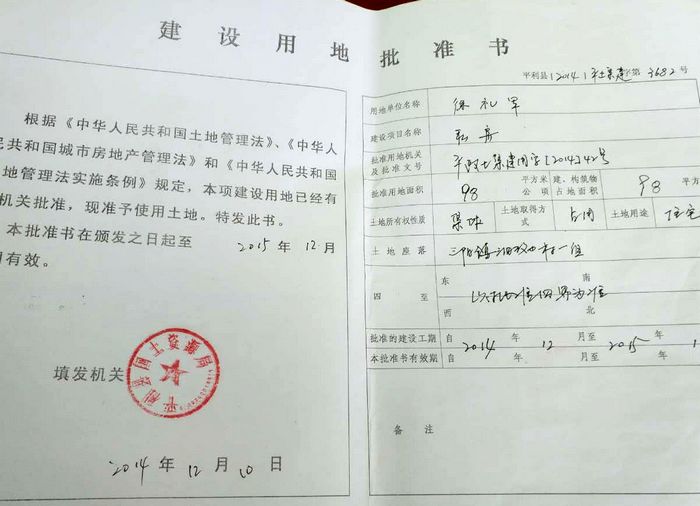 建设用地批准书
根据《中华人民共和国土地管理法》、《中华人
民共和国城市房地产管理法》和《中华人民共和国
地管理法实施条例》规定，本项建设用地已经有
机关批准，现准予使用土地。特发此书。
本批准书在颁发之日起至 2015 年 12 月
有效。
填发机关
平利县国土资源局
2014 年 12 月 10 日
平利县（2014）平土集建字第3682号
用地单位名称 徐礼军
建设项目名称
批准用地机关及批准文号 平政土集建用字[2014]42号
批准用地面积 98 平方米 公顷 建、构筑物占地面积 98 平方
土地所有权性质 集体 土地取得方式 占用 土地用途 住宅
土地座落 三阳镇 村一组
四至 东 南 西 北
以批准四界为准
批准的建设工期 自 2014 年 12 月至 2015 年 1
本批准书有效期 自 年 月至 年
备注